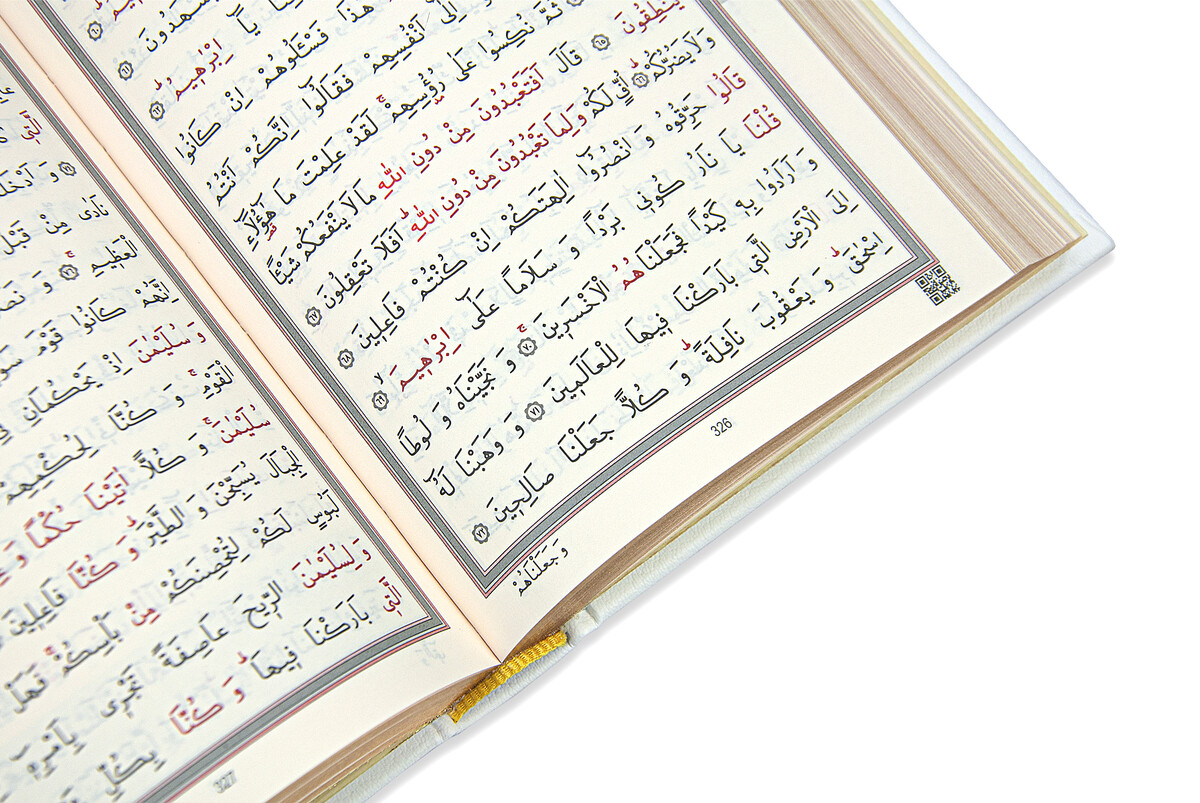 ٦٠
يَشْهَدُونَ ٦١
يَا اِبْرٰهِيمُ ٦٢
هٰذَا فَسْـَٔلُوهُمْ اِنْ كَانُوا
اِلٰٓى اَنْفُسِهِمْ فَقَالُٓوا اِنَّكُمْ اَنْتُمُ
ثُمَّ نُكِسُوا عَلٰى رُؤُسِهِمْ لَقَدْ عَلِمْتَ مَا هٰٓؤُلَٓاءِ
يَنْطِقُونَ ٦٥ قَالَ اَفَتَعْبُدُونَ مِنْ دُونِ اللّٰهِ مَا لَا يَنْفَعُكُمْ شَيْـًٔا
وَلَا يَضُرُّكُمْ ٦٦ اُفٍّ لَكُمْ وَلِمَا تَعْبُدُونَ مِنْ دُونِ اللّٰهِ اَفَلَا تَعْقِلُونَ ٦٧
قَالُوا حَرِّقُوهُ وَ انْصُرُٓوا اٰلِهَتَكُمْ اِنْ كُنْتُمْ فَاعِلِينَ ٦٨
قُلْنَا يَا نَارُ كُونِى بَرْدًا وَ سَلَامًا عَلٰٓى اِبْرٰهِيمَ ٦٩
وَ اَرَادُوا بِهِ كَيْدًا فَجَعَلْنَاهُمُ الْاَخْسَرِينَ ٧٠ وَ نَجَّيْنَاهُ وَ لُوطًا
اِلَى الْاَرْضِ الَّتِى بَارَكْنَا فِيهَا لِلْعَالَمِينَ ٧١ وَ وَهَبْنَا لَهُٓ
اِسْحٰقَ وَ يَعْقُوبَ نَافِلَةً وَ كُلًّا جَعَلْنَا صَالِحِينَ ٧٢
وَ جَعَلْنَاهُمْ
326
الَّتِى
نَادٰى مِنْ قَبْلُ
الْعَظِيمِ ٧٦
اِنَّهُمْ كَانُوا قَوْمَ
وَ سُلَيْمٰنَ اِذْ يَحْكُمَانِ
الْقَوْمِ وَ كُنَّا لِحُكْمِهِمْ
سُلَيْمٰنَ وَ كُلًّا اٰتَيْنَا حُكْمًا
الْجِبَالَ يُسَبِّحْنَ وَ الطَّيْرَ وَ كُنَّا فَاعِلِينَ
لَبُوسٍ لَكُمْ لِتُحْصِنَكُمْ مِنْ بَأْسِكُمْ فَهَلْ
وَ لِسُلَيْمٰنَ الرِّيحَ عَاصِفَةً تَجْرِى بِاَمْرِهِ
الَّتِى بَارَكْنَا فِيهَا وَ كُنَّا بِكُلِّ
327